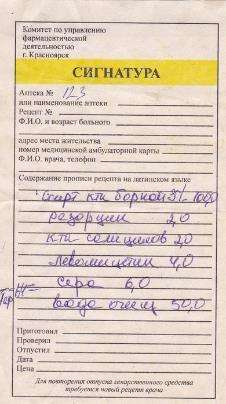 Комитет по управлению
фармацевтической
деятельностью
г. Красноярск
СИГНАТУРА
Аптека № 123
или наименование аптеки
Рецепт №
Ф.И.О. и возраст больного
адрес места жительства
номер медицинской амбулаторной карты
Ф.И.О. врача, телефон
Содержание прописи рецепта на латинском языке
Спирт к-ты борной 3% 100,0
резорцин 2,0
к-ты салицилов 2,0
левомицетин 4,0
сера 6,0
вода очищ 50,0
Приготовил
Проверил
Отпустил
Дата
Цена
Для повторения отпуска лекарственного средства
требуется новый рецепт врача